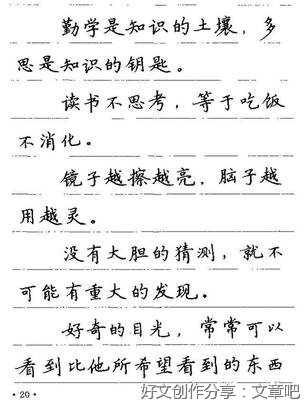 勤学是知识的土壤，多
思是知识的钥匙。
读书不思考，等于吃饭
不消化。
镜子越擦越亮，脑子越
用越灵。
没有大胆的猜测，就不
可能有重大的发现。
好奇的目光，常常可以
看到比他所希望看到的东西
·20·
好文创作分享：文章吧